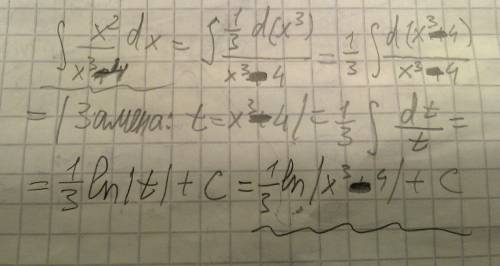 ∫ x²/(x³-4) dx = ∫ (1/3 d(x³))/(x³-4) = 1/3 ∫ d(x³-4)/(x³-4)
= |Замена: t = x³-4| = 1/3 ∫ dt/t =
= 1/3 ln|t| + C = 1/3 ln|x³-4| + C